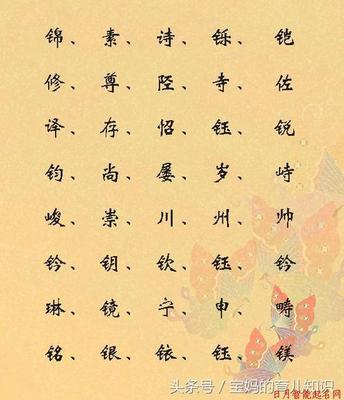 锦、素、诗、铄、铠
修、尊、陞、寺、佐
译、存、怊、钰、锐
钧、尚、屡、岁、峙
峻、崇、川、州、帅
钤、钥、钦、钰、钤
琳、镜、宁、申、畴
铭、银、铱、钰、镁
头条号/宝妈的育儿知识
日月智能起名网